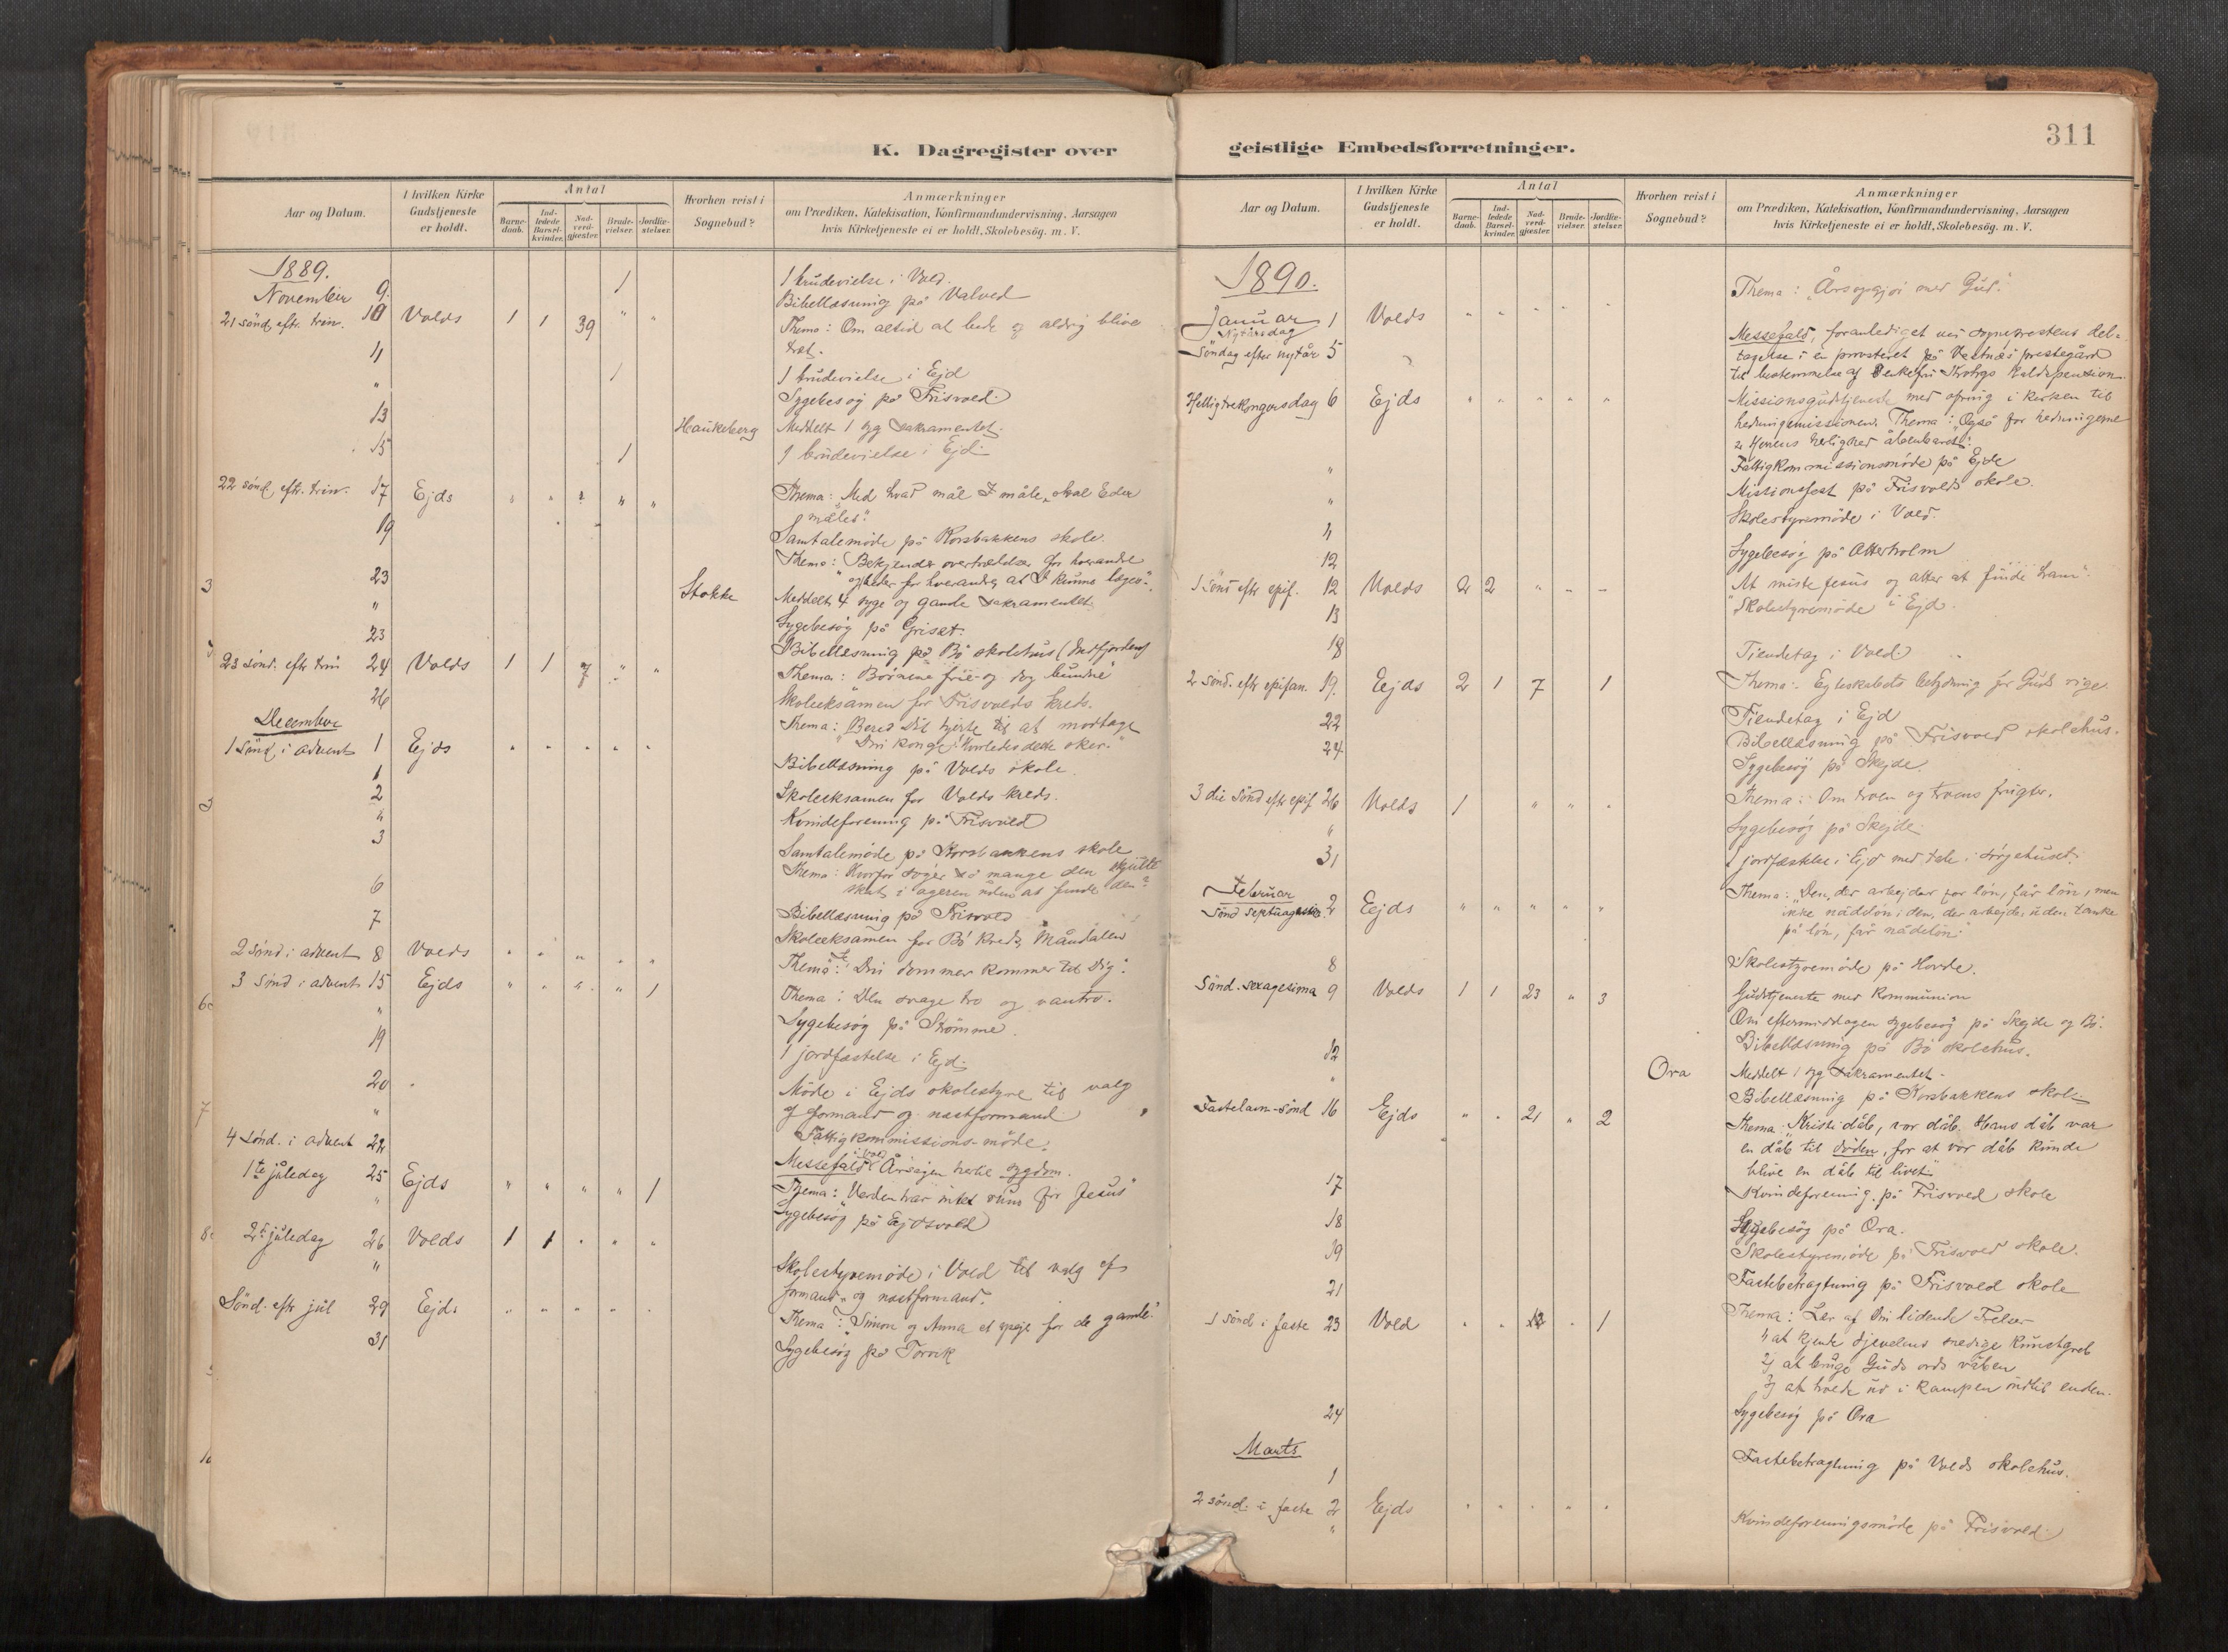 K. Dagregister over
Aar og Datum.
I hvilken Kirke Gudstjeneste er holdt.
Antal
Barne-daab.
Ind-ledede Barsel-kvinder.
Nad-verd-gjæster.
Brude-vielser.
Jordfæ-stelser.
Hvorhen reist i Sognebud?
Anmærkninger
om Prædiken, Katekisation, Konfirmandundervisning, Aarsagen
hvis Kirketjeneste ei er holdt, Skolebesøg. m. V.
1889.
November 9. 1 1 brudevielse i Vold.
Bibellæsning på Valved
21 sönd. eftr. trin. 10 Volds 1 1 39 " " Thema: Om altid at bede og aldrig blive
træt.
11 1 1 brudevielse i Ejd
" Sygebesøg på Frisvold.
13 Haukeberg Meddelt 1 syg sakramentet.
15 1 1 brudevielse i Ejd
22 sönd. eftr. trin. 17 Ejds " " " " " Thema: Med hvad mål I måle, skal Eder
måles".
19 Samtalemöde på Korsbakkens skole.
Thema: Bekjender overtrædelser for hverandre
og beder for hverandre, at I kunne læges".
23 Stokke Meddelt 4 syge og gamle sakramentet
" Sygebesøg på Griset.
23 Bibellæsning på Bö skolehus (Indfjorden)
23 sönd. eftr. trin 24 Volds 1 1 7 " " Thema: Börnene frie og dog bundne
26 Skoleeksamen for Frisvolds kreds.
December
1 sönd. i advent 1 Ejds " " " " " Thema: Bered Dit hjerte til at modtage
Din konge! Hvorledes dette sker."
1 Bibellæsning på Volds skole.
2 Skoleeksamen for Volds kreds.
" Kvindeforening på Frisvold
3 Samtalemöde på Korsbakkens skole
Thema: Hvorfor söger så mange den skjulte
skat i ageren uden at finde den?
6 Bibellæsning på Frisvold
7 Skoleeksamen for Bö kreds, Måndalen
2 sönd. i advent 8 Volds " " " " " Thema: "Din dommer kommer til Dig".
3 sönd. i advent 15 Ejds " " " " 1 Thema: Den svage tro og vantro.
" Sygebesøg på Strömme.
19 1 jordfæstelse i Ejd.
20 Möde i Ejds skolestyre til valg
af formand og næstformand.
" Fattigkommissions-möde.
4 sönd. i advent 22 Messefald i Vold Årsagen hertil sygdom.
1te juledag 25 Ejds " " " " 1 Thema: "Verden har intet rum for Jesus"
" Sygebesøg på Ejdsvold
2de juledag 26 Volds 1 1 " " "
" Skolestyremöde i Vold til valg af
formand og næstformand.
Sönd. eftr jul 29 Ejds " " " " " Thema: "Simon og Anna et spejl for de gamle."
31 Sygebesøg på Torvik
geistlige Embedsforretninger.
311
Aar og Datum.
I hvilken Kirke Gudstjeneste er holdt.
Antal
Barne-daab.
Ind-ledede Barsel-kvinder.
Nad-verd-gjæster.
Brude-vielser.
Jordfæ-stelser.
Hvorhen reist i Sognebud?
Anmærkninger
om Prædiken, Katekisation, Konfirmandundervisning, Aarsagen
hvis Kirketjeneste ei er holdt, Skolebesøg. m. V.
1890.
Januar 1 Volds " " " " " Thema: "Årsopgjör med Gud."
Nytårsdag
Söndag efter nytår 5 Messefald, foranlediget ved sogneprestens del-
tagelse i en provsteret på Vestnæs prestegård
til bestemmelse af enkefru Krohgs pension.
Helligtrekongersdag 6 Ejds " " " " " Missionsgudstjeneste med ofring i kirken til
hedningemissionen. Thema: "Også for hedningerne
er Herrens herlighed åbenbaret".
" Fattigkommissionsmöde på Ejde
" Missionsfest på Frisvolds skole.
11 Skolestyremöde i Vold.
12 Sygebesøg på Otterholm
1 sönd eftr epif. 12 Volds 2 2 " " " At miste Jesus og atter at finde ham".
13 Skolestyremöde i Ejd.
18 Tiendetag i Vold
2 sönd. eftr epifan. 19. Ejds 2 1 7 1 Thema: Egteskabets betydning for Guds rige.
22 Tiendetag i Ejd
24 Bibellæsning på Frisvold skolehus.
Sygebesøg på Skejde.
3die sönd eftr epif. 26 Volds 1 " " " Thema: Om troen og troens frugter.
" Sygebesøg på Skejde
31 1 jordfæstelse i Ejd med tale i sörgehuset.
Februar
Sönd septuagesima 2 Ejds " " " " " Thema: "Den, der arbejder for lön, får lön, men
ikke nådelön; den, der arbejder uden tanke
på lön, får nådelön."
8 Skolestyremöde på Hovde.
Sönd. sexagesima 9 Volds 1 1 23 " 3 Gudstjeneste med kommunion
Om eftermiddagen sygebesøg på Skejde og Bö.
12 Bibellæsning på Bö skolehus.
" Ora Meddelt 1 syg sakramentet.
Bibellæsning på Korsbakkens skole
Fastelavn-sönd 16 Ejds " " 21 " 2 Thema: Kristi dåb, vor dåb. Hans dåb var
en dåb til döden, for at vor dåb kunde
blive en dåb til livet"
17 Kvindeforening på Frisvold skole
18 Sygebesøg på Ora.
19 Skolestyremöde på Frisvold skole.
21 Fastebetragtning på Frisvold skole
1 sönd i faste 23 Vold " " " 1 Thema: Lær af Din lidende Frelser
1) at kjende djevelens snedige kunstgreb
2) at bruge Guds ords våben
3) at holde ud i kampen indtil enden.
24 Sygebesøg på Ora
Marts
1 Fastebetragtning på Volds skolehus.
2 sönd. i faste 2 Ejds " " " " "
" Kvindeforeningsmöde på Frisvold